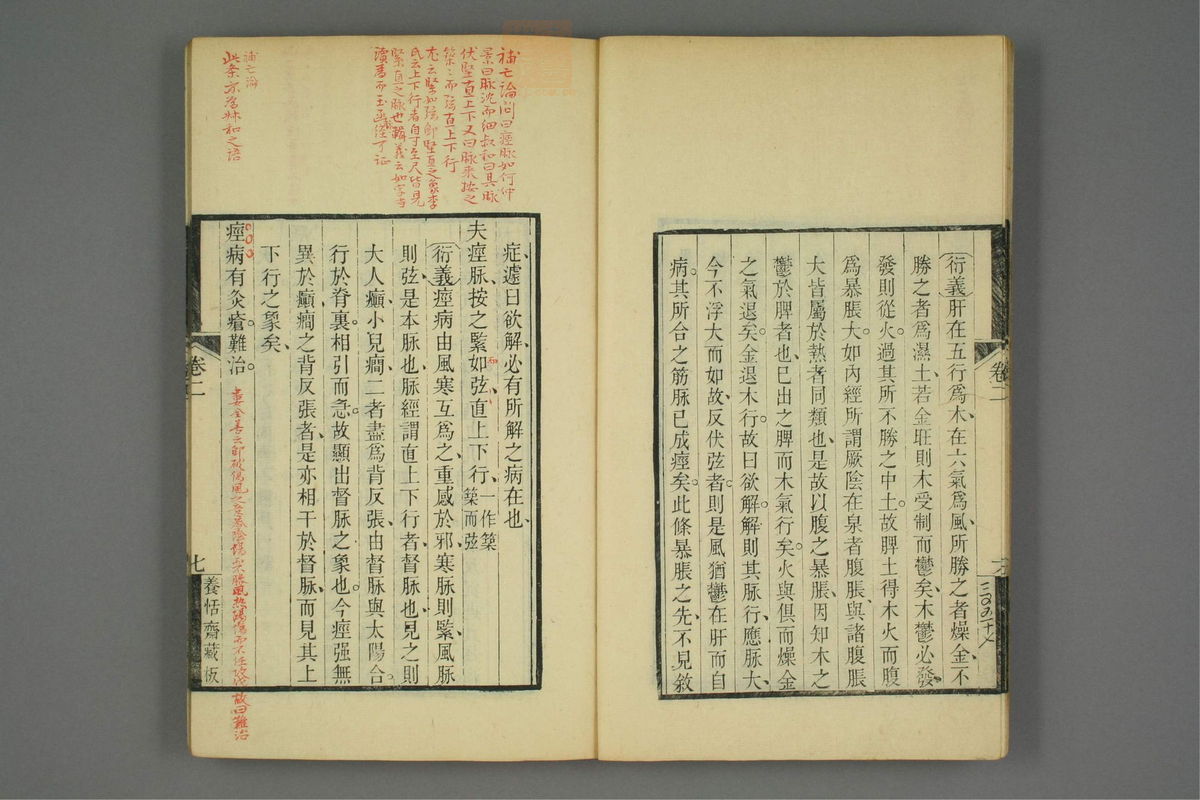 (衍義)肝在五行爲木、在六氣爲風、所勝之者燥金、不
勝之者爲濕土、若金旺則木受制而鬱矣、木鬱必發、
發則從火。過其所不勝之中土。故脾土得木火而腹
爲暴脹。大如內經所謂厥陰在泉者腹脹、與諸腹脹
大皆屬於熱者同類也、是故以腹之暴脹、因知木之
鬱於脾者也、已出之脾而木氣行矣。火與俱而燥金
之氣退矣。金退木行。故曰欲解。解則其脉行、應脉大、
今不浮大而如故、反伏弦者。則是風猶鬱在肝而自
病。其所合之筋脉已成痙矣。此條暴脹之先、不見敘
卷二
症、遽曰欲解、必有所解之病在也、
夫痙脉按之緊如弦、直上下行、一作築築而弦
(衍義)痙病由風寒互爲之、重感於邪、寒脉則緊、風脉
則弦、是本脉也、脉經謂直上下行者、督脉也、見之則
大人癲、小兒癎、二者盡爲背反張、由督脉與太陽合。
行於脊裏相引而急。故顯出督脉之象也。今痙强無
異於癲癎之背反張者、是亦相干於督脉、而見其上
下行之象矣、
痙病有灸瘡。難治。
卷二
七
養恬齋藏板
補亡論問曰痙脉如何仲
景曰脉沈而細叔和曰其脉
伏堅直上下又曰脉來按之
築〻而弦直上下行
尤云緊如弦卽堅直之象李
氏云上下行者自寸至尺皆見
緊直之脉也輯義云如字古
讀爲而玉函經可証
補亡論
此条亦爲叔和之語
婁全善云卽破傷風之意
故曰難治